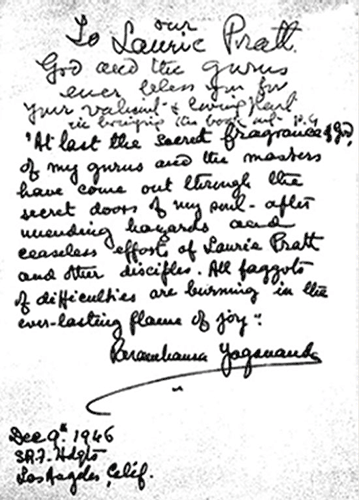 our
To Laurie Pratt.
God and the gurus
ever bless you for
your valiant & loving part
in bringing this book out P.Y.
"At last the secret fragrance of God,
of my gurus and the masters
have come out through the
secret doors of my soul - after
unending hazards and
ceaseless efforts of Laurie Pratt
and other disciples. All faggots
of difficulties are burning in the
ever-lasting flame of joy":
Paramhansa Yogananda
Dec 9th 1946
S.R.F. Hdqts
Los Angeles, Calif.